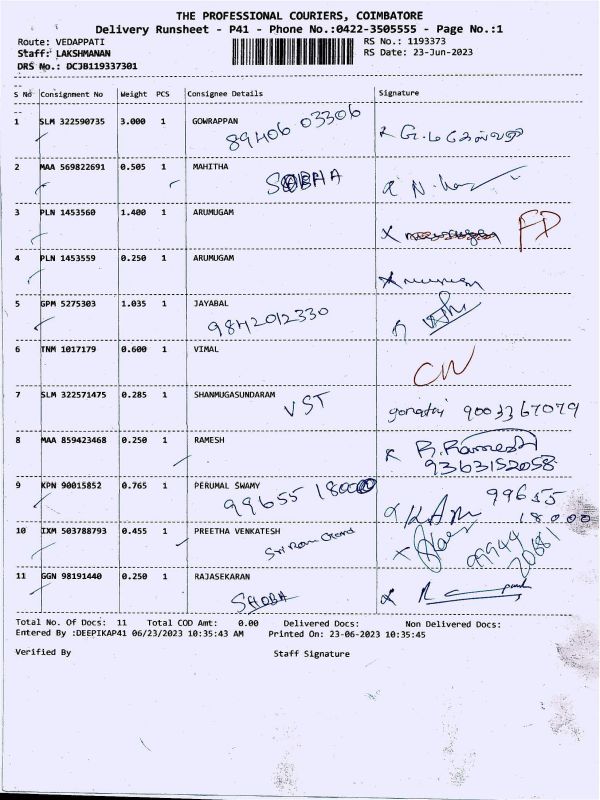 THE PROFESSIONAL COURIERS, COIMBATORE
Delivery Runsheet - P41 - Phone No.:0422-3505555 - Page No.:1
Route: VEDAPPATI
RS No.: 1193373
Staff: LAKSHMANAN
RS Date: 23-Jun-2023
DRS No.: DCJB119337301
S No Consignment No Weight PCS Consignee Details Signature
1 SLM 322590735 3.000 1 GOWRAPPAN
89406 03306
2 MAA 569822691 0.505 1 MAHITHA
SOBHA
3 PLN 1453560 1.400 1 ARUMUGAM
FD
4 PLN 1453559 0.250 1 ARUMUGAM
5 GPM 5275303 1.035 1 JAYABAL
9842012330
6 TNM 1017179 0.600 1 VIMAL
CN
7 SLM 322571475 0.285 1 SHANMUGASUNDARAM
VST
9003367079
8 MAA 859423468 0.250 1 RAMESH
R.Ramesh
9363152058
9 KPN 90015852 0.765 1 PERUMAL SWAMY
99655 18000
99655
18000
10 IXM 503788793 0.455 1 PREETHA VENKATESH
Sri Ram Grand
11 GGN 98191440 0.250 1 RAJASEKARAN
SHOBA
Total No. Of Docs: 11 Total COD Amt: 0.00 Delivered Docs: Non Delivered Docs:
Entered By :DEEPIKAP41 06/23/2023 10:35:43 AM Printed On: 23-06-2023 10:35:45
Verified By Staff Signature